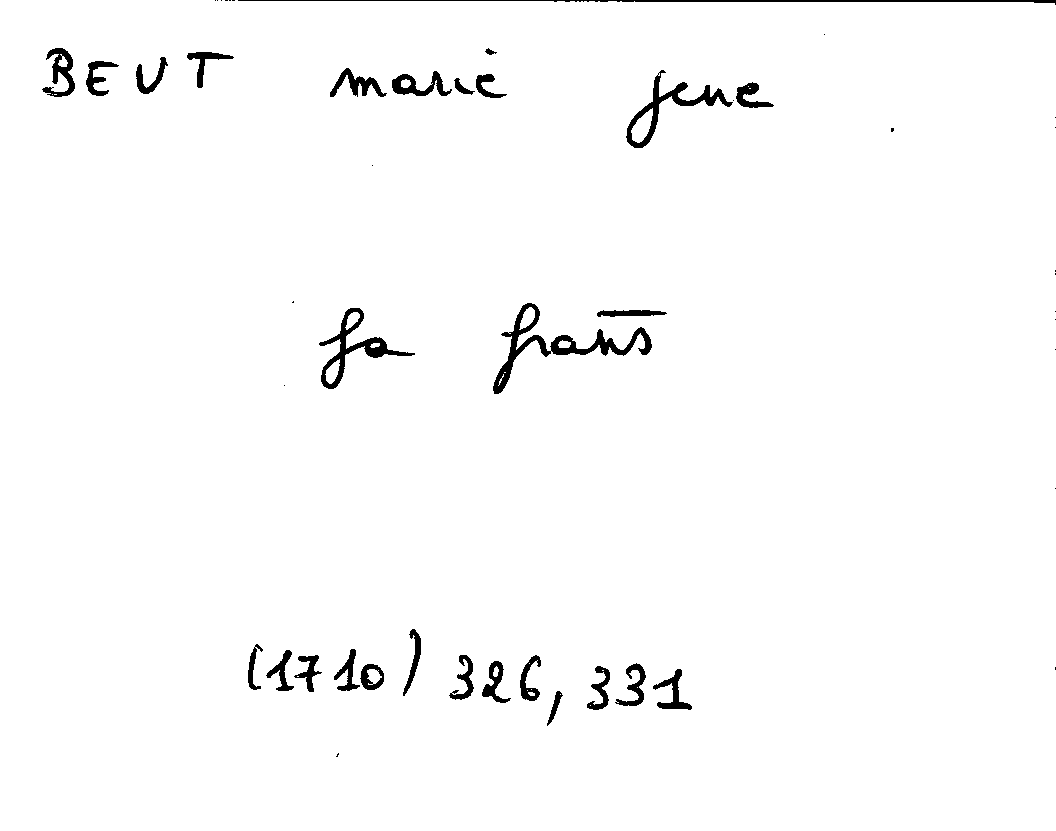 BEUT marie jene
fa frans
(1710) 326, 331